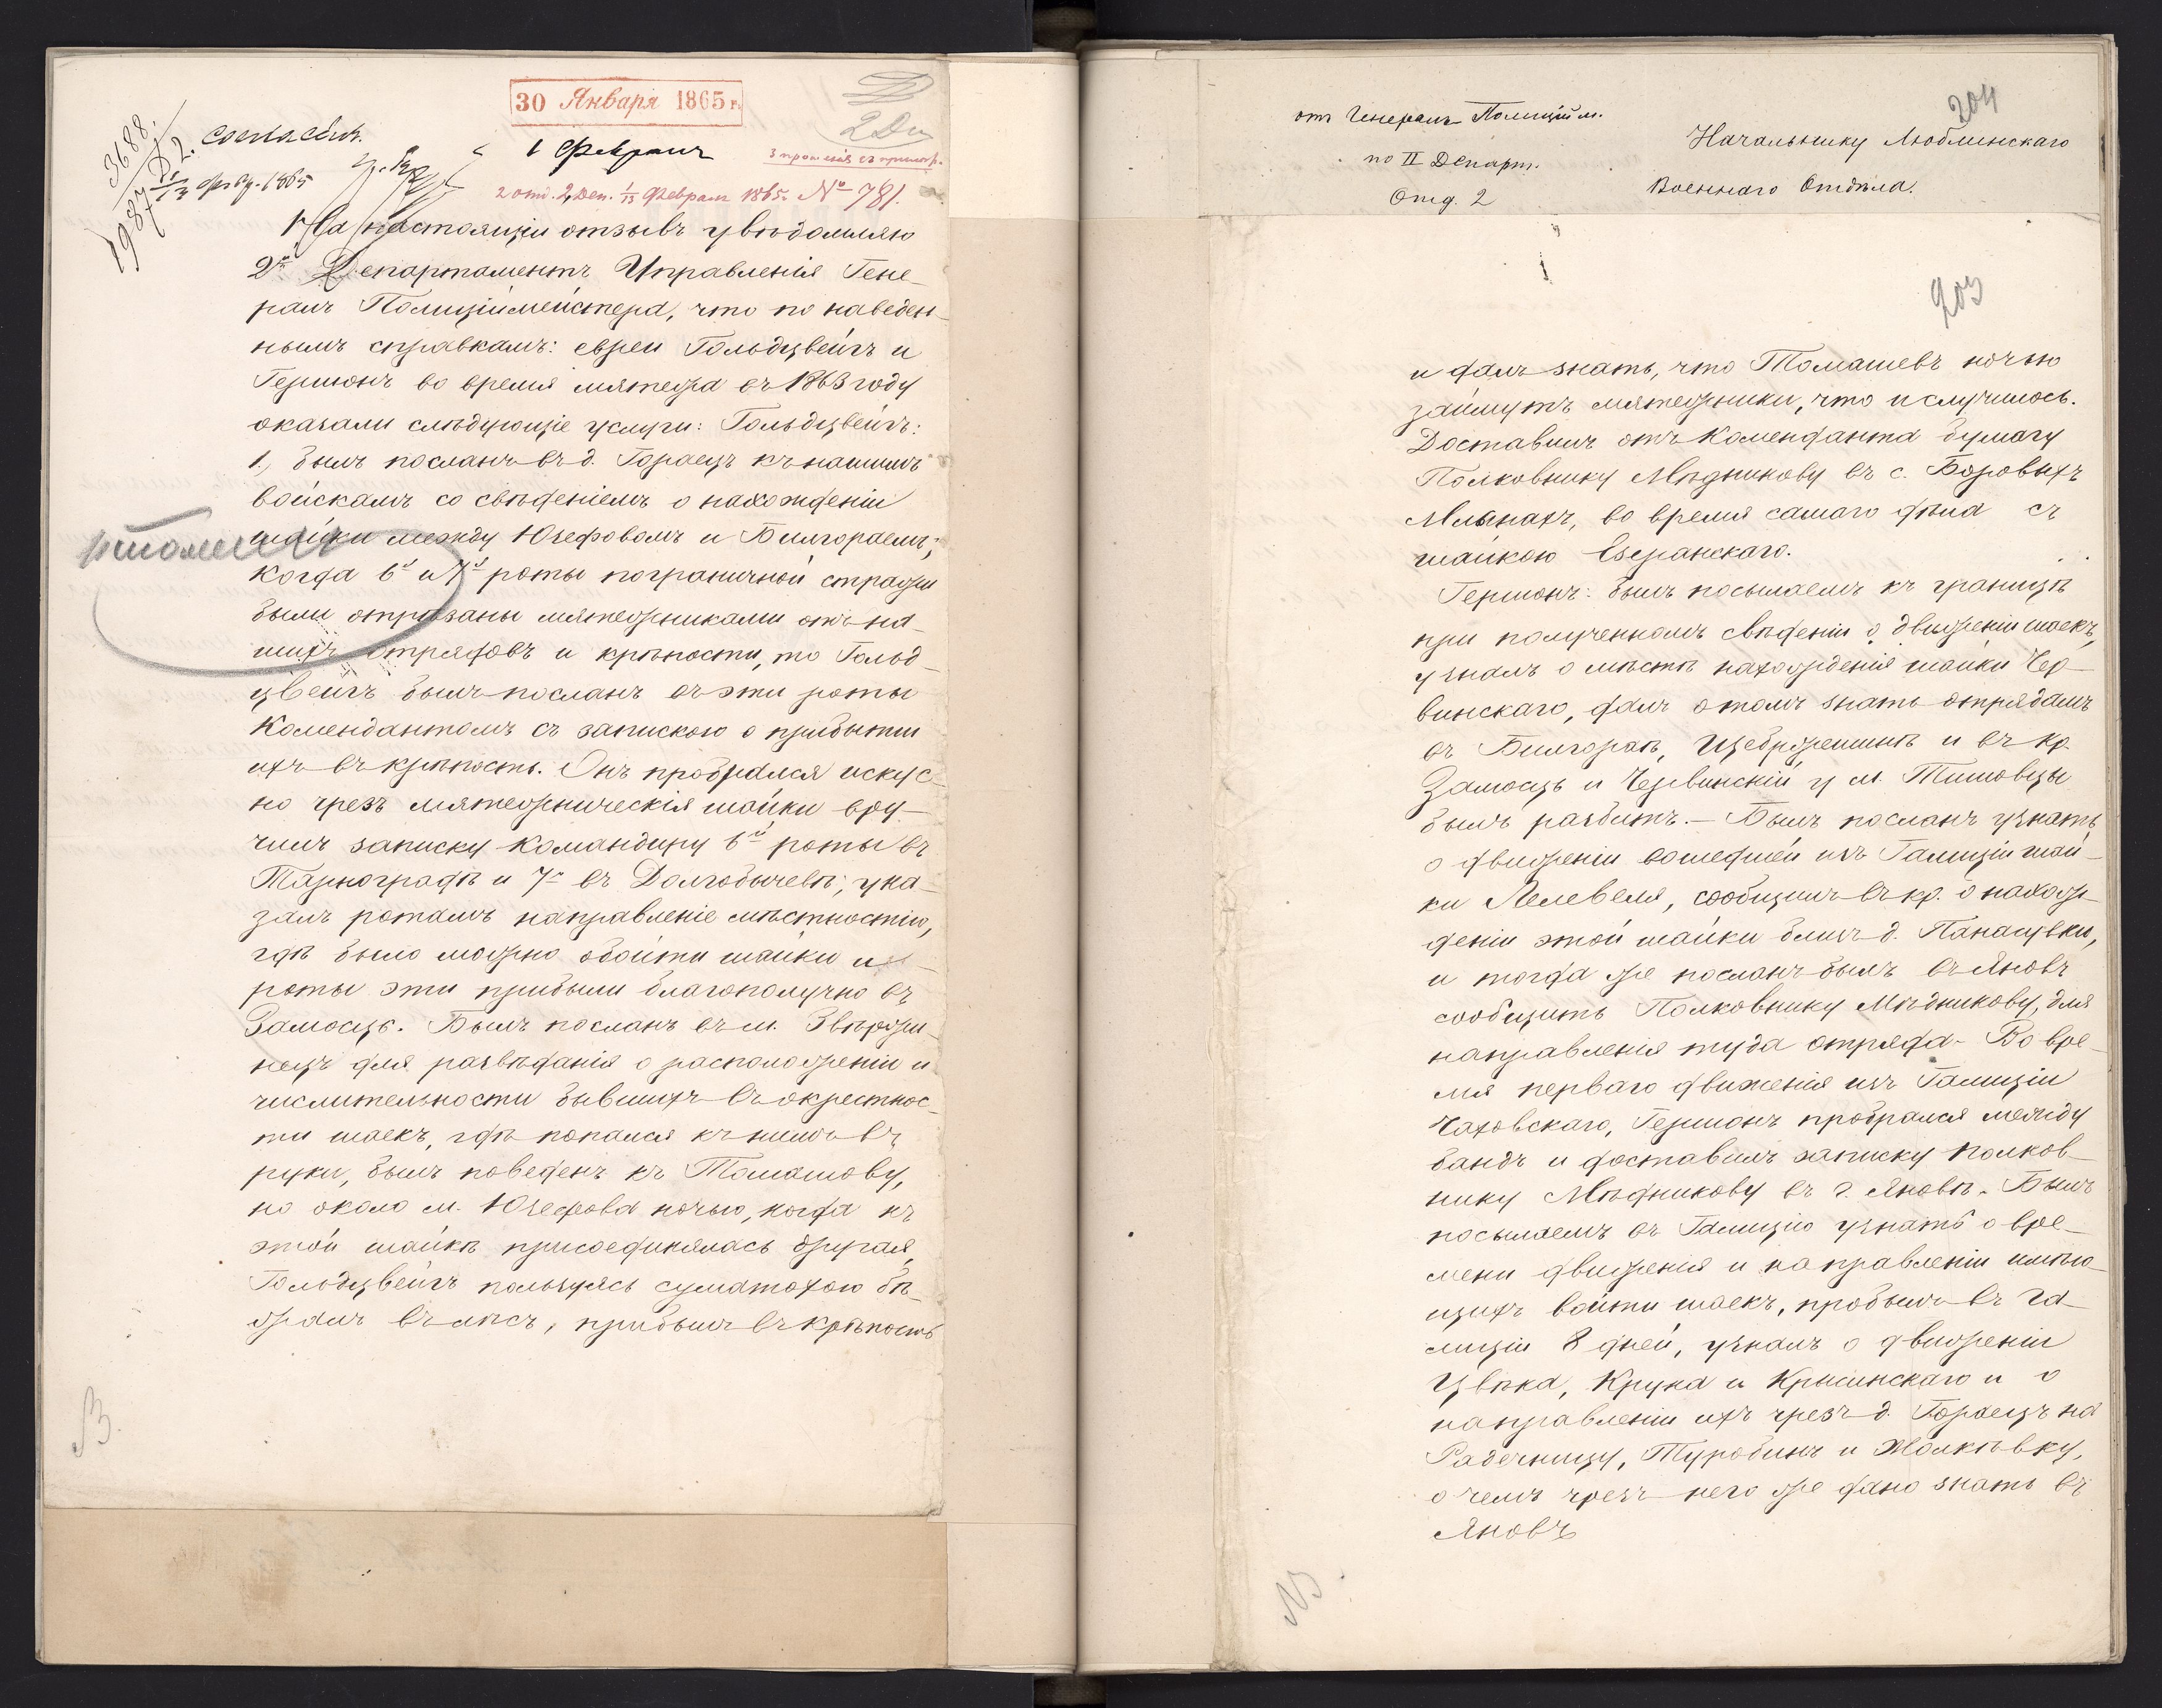 30 Января 1865 г.
1 Февраля
2 отд. 2 Деп. 1/13 Февраля 1865 № 781.
3688.
1987
Д 2.
1/13 февр. 1865
На настоящiй отзывъ увѣдомляю
2й Департаментъ Управленiя Гене-
ралъ Полицiймейстера, что по наведен-
нымъ справкамъ: евреи Гольдцвейгъ и
Гершонъ во время мятежа въ 1863 году
оказали слѣдующiе услуги: Гольдцвейгъ:
1., былъ посланъ въ д. Гораецъ къ нашимъ
войскамъ со свѣденiемъ о нахожденiи
шайки между Юзефовомъ и Билгораемъ;
когда 6я и 7я роты пограничной стражи
были отрѣзаны мятежниками отъ на-
шихъ отрядовъ и крѣпости, то Гольд-
цвейгъ былъ посланъ въ эти роты
Комендантомъ съ запискою о прибытiи
ихъ въ крѣпость. Онъ пробрался искус-
но чрезъ мятежническiя шайки вру-
чилъ записку командиру 6й роты въ
Тарнографѣ и 7й въ Долгобычевѣ; ука-
залъ ротамъ направленiе мѣстностiю,
гдѣ было можно обойти шайки и
роты эти прибыли благополучно въ
Замосцъ. Былъ посланъ въ м. Звѣржи-
нецъ для развѣданiя о расположенiи и
числительности бывшихъ въ окрестнос-
ти шаекъ, гдѣ попался къ нимъ въ
руки, былъ поведенъ къ Томашову,
но около м. Юзефова ночью, когда къ
этой шайкѣ присоединялась другая,
Гольдцвейгъ пользуясь суматохою бѣ-
жалъ въ лѣсъ, прибылъ въ крѣпость
от Генералъ-Полицiйм.
по II Департ.
Отд. 2
204
Начальнику Люблинскаго
Военнаго Отдѣла.
203
и далъ знать, что Томашевъ ночью
займутъ мятежники, что и случилось.
Доставилъ отъ Коменданта бумагу
Полковнику Мѣдникову въ с. Боровыхъ
Млынахъ, во время самаго дѣла съ
шайкою Езеранскаго.
Гершонъ: былъ посылаемъ къ границѣ
при полученномъ свѣденiи о движенiи шаекъ,
узналъ о мѣстѣ нахожденiя шайки Чер-
винскаго, далъ о томъ знать отрядамъ
въ Билгораѣ, Щебржешинѣ и въ кр.
Замосцъ и Червинскiй у м. Тишовцы
былъ разбитъ. – Былъ посланъ узнать
о движенiи вошедшей изъ Галицiи шай-
ки Лелевеля, сообщилъ въ кр. о нахож-
денiи этой шайки близъ д. Панасувки,
и тогда же посланъ былъ въ Яновъ
сообщить Полковнику Мѣдникову, для
направленiя туда отряда – Во вре-
мя перваго движенiя изъ Галицiи
Чаховскаго, Гершонъ пробрался между
бандъ и доставилъ записку полков-
нику Мѣдникову въ г. Яновѣ. Былъ
посылаемъ въ Галицiю узнать о вре-
мени движенiя и направленiи имѣю-
щихъ войти шаекъ, пробылъ въ Га-
лицiи 8 дней, узналъ о движенiи
Цвѣка, Крука и Крысинскаго и о
направленiи ихъ чрезъ д. Гораецъ на
Радечницу, Туробинъ и Жолкѣвку,
о чемъ чрезъ него же дано знать въ
Яновъ